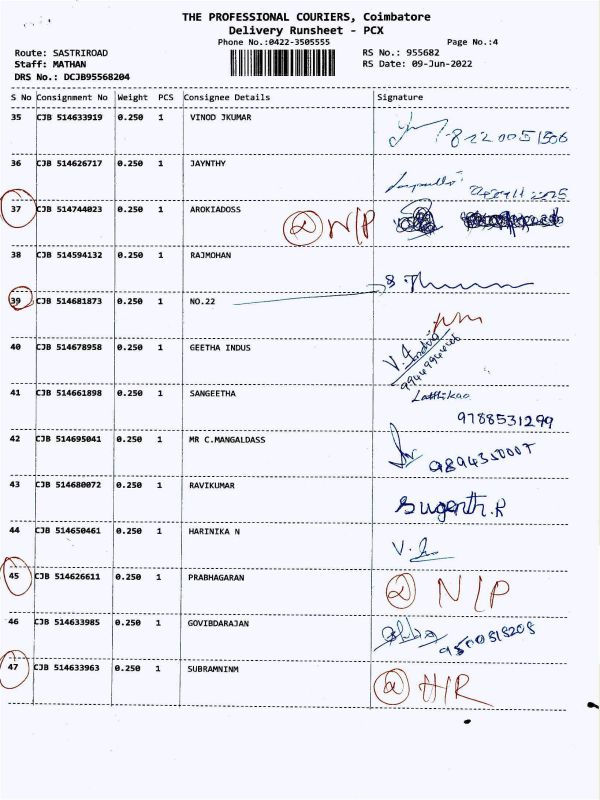 THE PROFESSIONAL COURIERS, Coimbatore
Delivery Runsheet - PCX
Phone No.:0422-3505555 Page No.:4
Route: SASTRIROAD RS No.: 955682
Staff: MATHAN RS Date: 09-Jun-2022
DRS No.: DCJB95568204
S No Consignment No Weight PCS Consignee Details Signature
35 CJB 514633919 0.250 1 VINOD JKUMAR
36 CJB 514626717 0.250 1 JAYNTHY
37 CJB 514744023 0.250 1 AROKIADOSS N/P
38 CJB 514594132 0.250 1 RAJMOHAN
39 CJB 514681873 0.250 1 NO.22
40 CJB 514678958 0.250 1 GEETHA INDUS
41 CJB 514661898 0.250 1 SANGEETHA
9788531299
42 CJB 514695041 0.250 1 MR C.MANGALDASS
43 CJB 514680072 0.250 1 RAVIKUMAR
Sugenth.R
44 CJB 514650461 0.250 1 HARINIKA N
45 CJB 514626611 0.250 1 PRABHAGARAN N/P
46 CJB 514633985 0.250 1 GOVIBDARAJAN
47 CJB 514633963 0.250 1 SUBRAMNINM